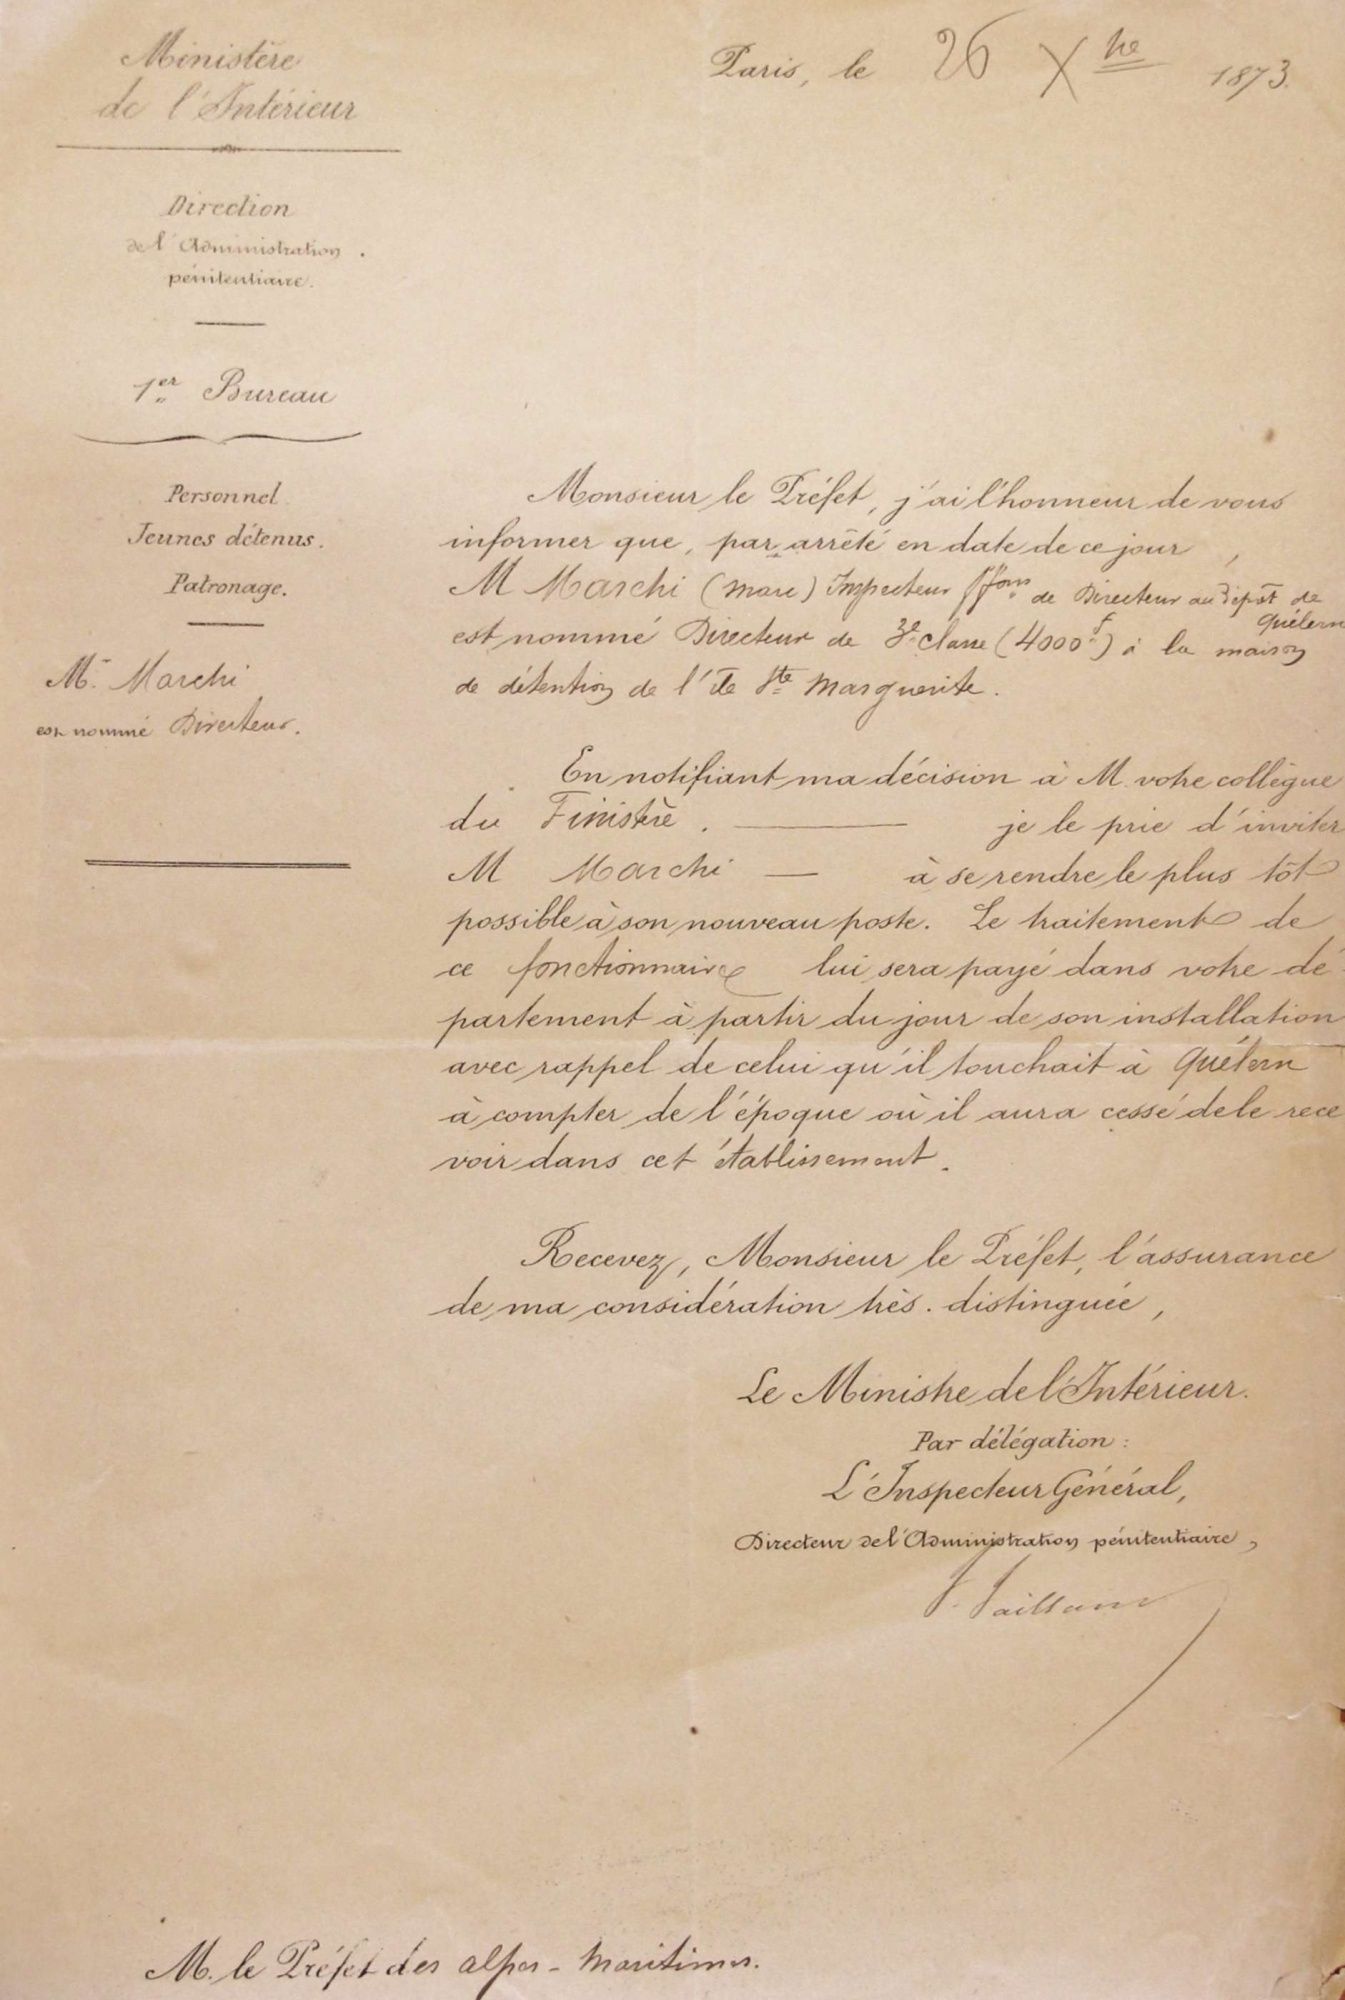 Ministère
de l'Intérieur
Paris, le 26 Xbre 1873.
Direction
de l'Administration
pénitentiaire.
1er Bureau
Personnel
Jeunes détenus.
Patronage.
Mr Marchi
est nommé Directeur.
Monsieur le Préfet, j'ai l'honneur de vous
informer que, par arrêté en date de ce jour,
M Marchi (Marc) Inspecteur ffons de Directeur au Dépôt de
Quélern
est nommé Directeur de 3e classe (4000f) à la maison
de détention de l'île Ste Marguerite.
En notifiant ma décision à M. votre collègue
du Finistère. — je le prie d'inviter
M Marchi — à se rendre le plus tôt
possible à son nouveau poste. Le traitement de
ce fonctionnaire lui sera payé dans votre dé
partement à partir du jour de son installation
avec rappel de celui qu'il touchait à Quélern
à compter de l'époque où il aura cessé de le rece
voir dans cet établissement.
Recevez, Monsieur le Préfet, l'assurance
de ma considération très. distinguée,
Le Ministre de l'Intérieur.
Par délégation :
L'Inspecteur Général,
Directeur de l'Administration pénitentiaire,
M. le Préfet des alpes-Maritimes.